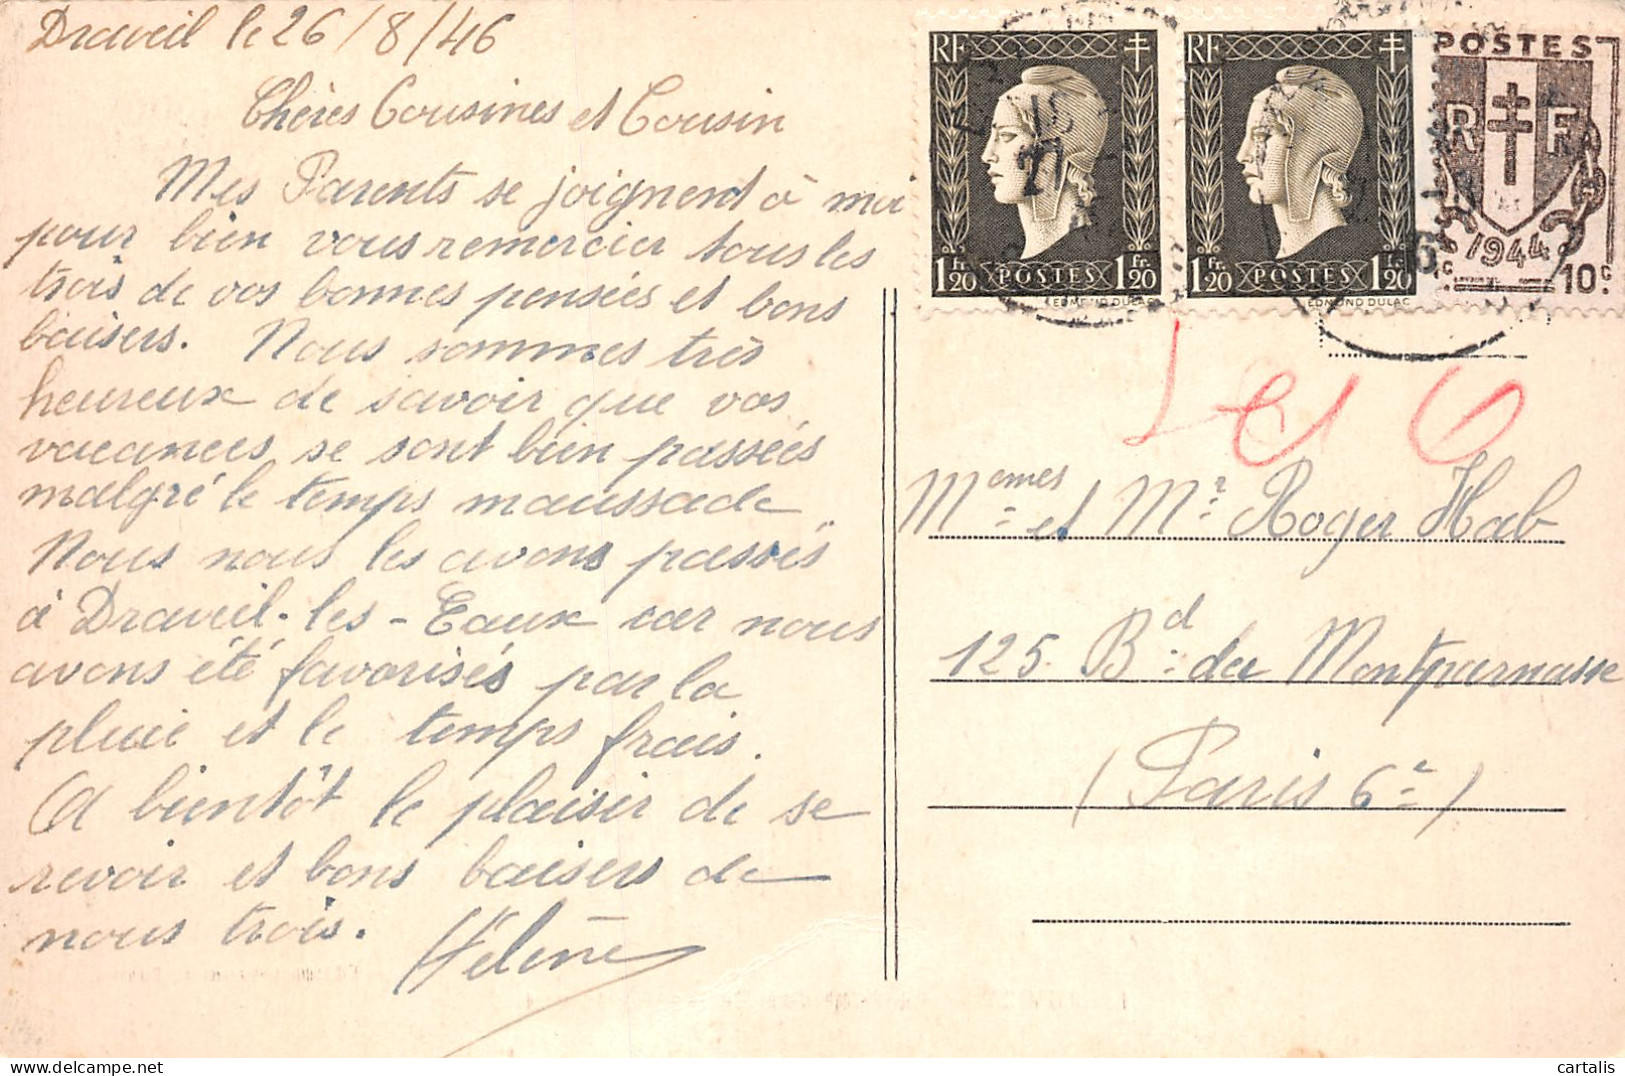 Draveil le 26/8/46
Chères Cousines et Cousin
Mes Parents se joignent à moi
pour bien vous remercier tous les
trois de vos bonnes pensées et bons
baisers. Nous sommes très
heureux de savoir que vos
vacances se sont bien passées
malgré le temps maussade.
Nous nous les avons passés
à Draveil-les-Eaux car nous
avons été favorisés par la
pluie et le temps frais.
A bientôt le plaisir de se
revoir et bons baisers de
nous trois.
Hélène
RF
1 Fr. 20 POSTES 1 Fr. 20
EDMOND DULAC
RF
1 Fr. 20 POSTES 1 Fr. 20
EDMOND DULAC
POSTES
R F
1944
10c
Memes et Mr Roger Hab
125 Bd du Montparnasse
(Paris 6e)
cartalis